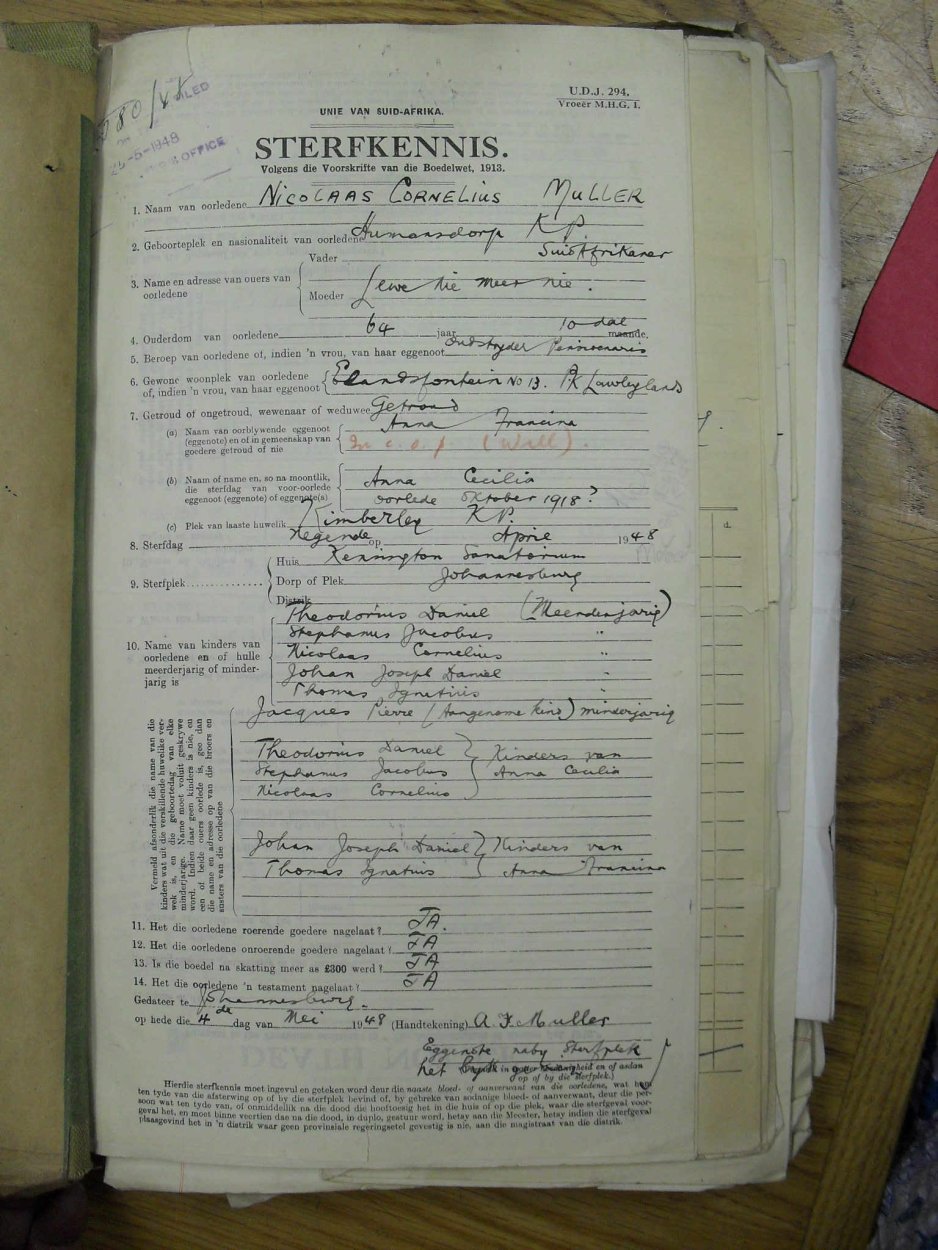 380/48
FILED
25-5-1948
OFFICE
U.D.J. 294.
Vroeër M.H.G. 1.
UNIE VAN SUID-AFRIKA.
STERFKENNIS.
Volgens die Voorskrifte van die Boedelwet, 1913.
1. Naam van oorledene NICOLAAS CORNELIUS MULLER
2. Geboorteplek en nasionaliteit van oorledene Humansdorp K.P.
Suid Afrikaner
Vader
3. Name en adresse van ouers van oorledene
Moeder Lewe nie meer nie.
4. Ouderdom van oorledene 64 jaar 10 dae maande.
5. Beroep van oorledene of, indien 'n vrou, van haar eggenoot Oudstryder Pensioenaris
6. Gewone woonplek van oorledene of, indien 'n vrou, van haar eggenoot Elandsfontein No 13. P.K Lawleylands
7. Getroud of ongetroud, wewenaar of weduwee Getroud
(a) Naam van oorblywende eggenoot (eggenote) en of in gemeenskap van goedere getroud of nie Anna Francina
In c.o.p (Will).
(b) Naam of name en, so na moontlik, die sterfdag van voor-oorlede eggenoot (eggenote) of eggenote(s) Anna Cecilia
oorlede Oktober 1918?
(c) Plek van laaste huwelik Kimberley K.P.
8. Sterfdag Negende op April 1948
9. Sterfplek Huis Kensington Sanatorium
Dorp of Plek Johannesburg
Distrik
10. Name van kinders van oorledene en of hulle meerderjarig of minderjarig is
Theodorius Daniel (Meerderjarig)
Stephanus Jacobus "
Nicolaas Cornelius "
Johan Joseph Daniel "
Thomas Ignatius "
Jacques Pierre (Aangenome kind) minderjarig
Vermeld afsonderlik die name van die kinders wat uit die verskillende huwelike verwek is, en die geboortedag van elke minderjarige. Name moet voluit geskrywe word. Indien daar geen kinders is nie, en een of beide ouers oorlede is, gee dan die name en adresse op van die broers en susters van die oorledene
Theodorius Daniel } Kinders van
Stephanus Jacobus } Anna Cecilia
Nicolaas Cornelius
Johan Joseph Daniel } Kinders van
Thomas Ignatius } Anna Francina
11. Het die oorledene roerende goedere nagelaat? JA.
12. Het die oorledene onroerende goedere nagelaat? JA
13. Is die boedel na skatting meer as £300 werd? JA
14. Het die oorledene 'n testament nagelaat? JA
Gedateer te Johannesburg
op hede die 4de dag van Mei 1948 (Handtekening) A F Muller
Eggenote naby Sterfplek
het
op of by die sterfplek.)
Hierdie sterfkennis moet ingevul en geteken word deur die naaste bloed- of aanverwant van die oorledene, wat
ten tyde van die afsterwing op of by die sterfplek bevind of, by gebreke van sodanige bloed- of aanverwant, deur die per-
soon wat ten tyde van, of onmiddellik na die dood die hooftoesig het in die huis of op die plek, waar die sterfgeval voor-
geval het, en moet binne veertien dae na die dood, in duplo, gestuur word, hetsy aan die Meester, hetsy indien die sterfgeval
plaasgevind het in 'n distrik waar geen provinsiale regeringsetel gevestig is nie, aan die magistraat van die distrik.
d.